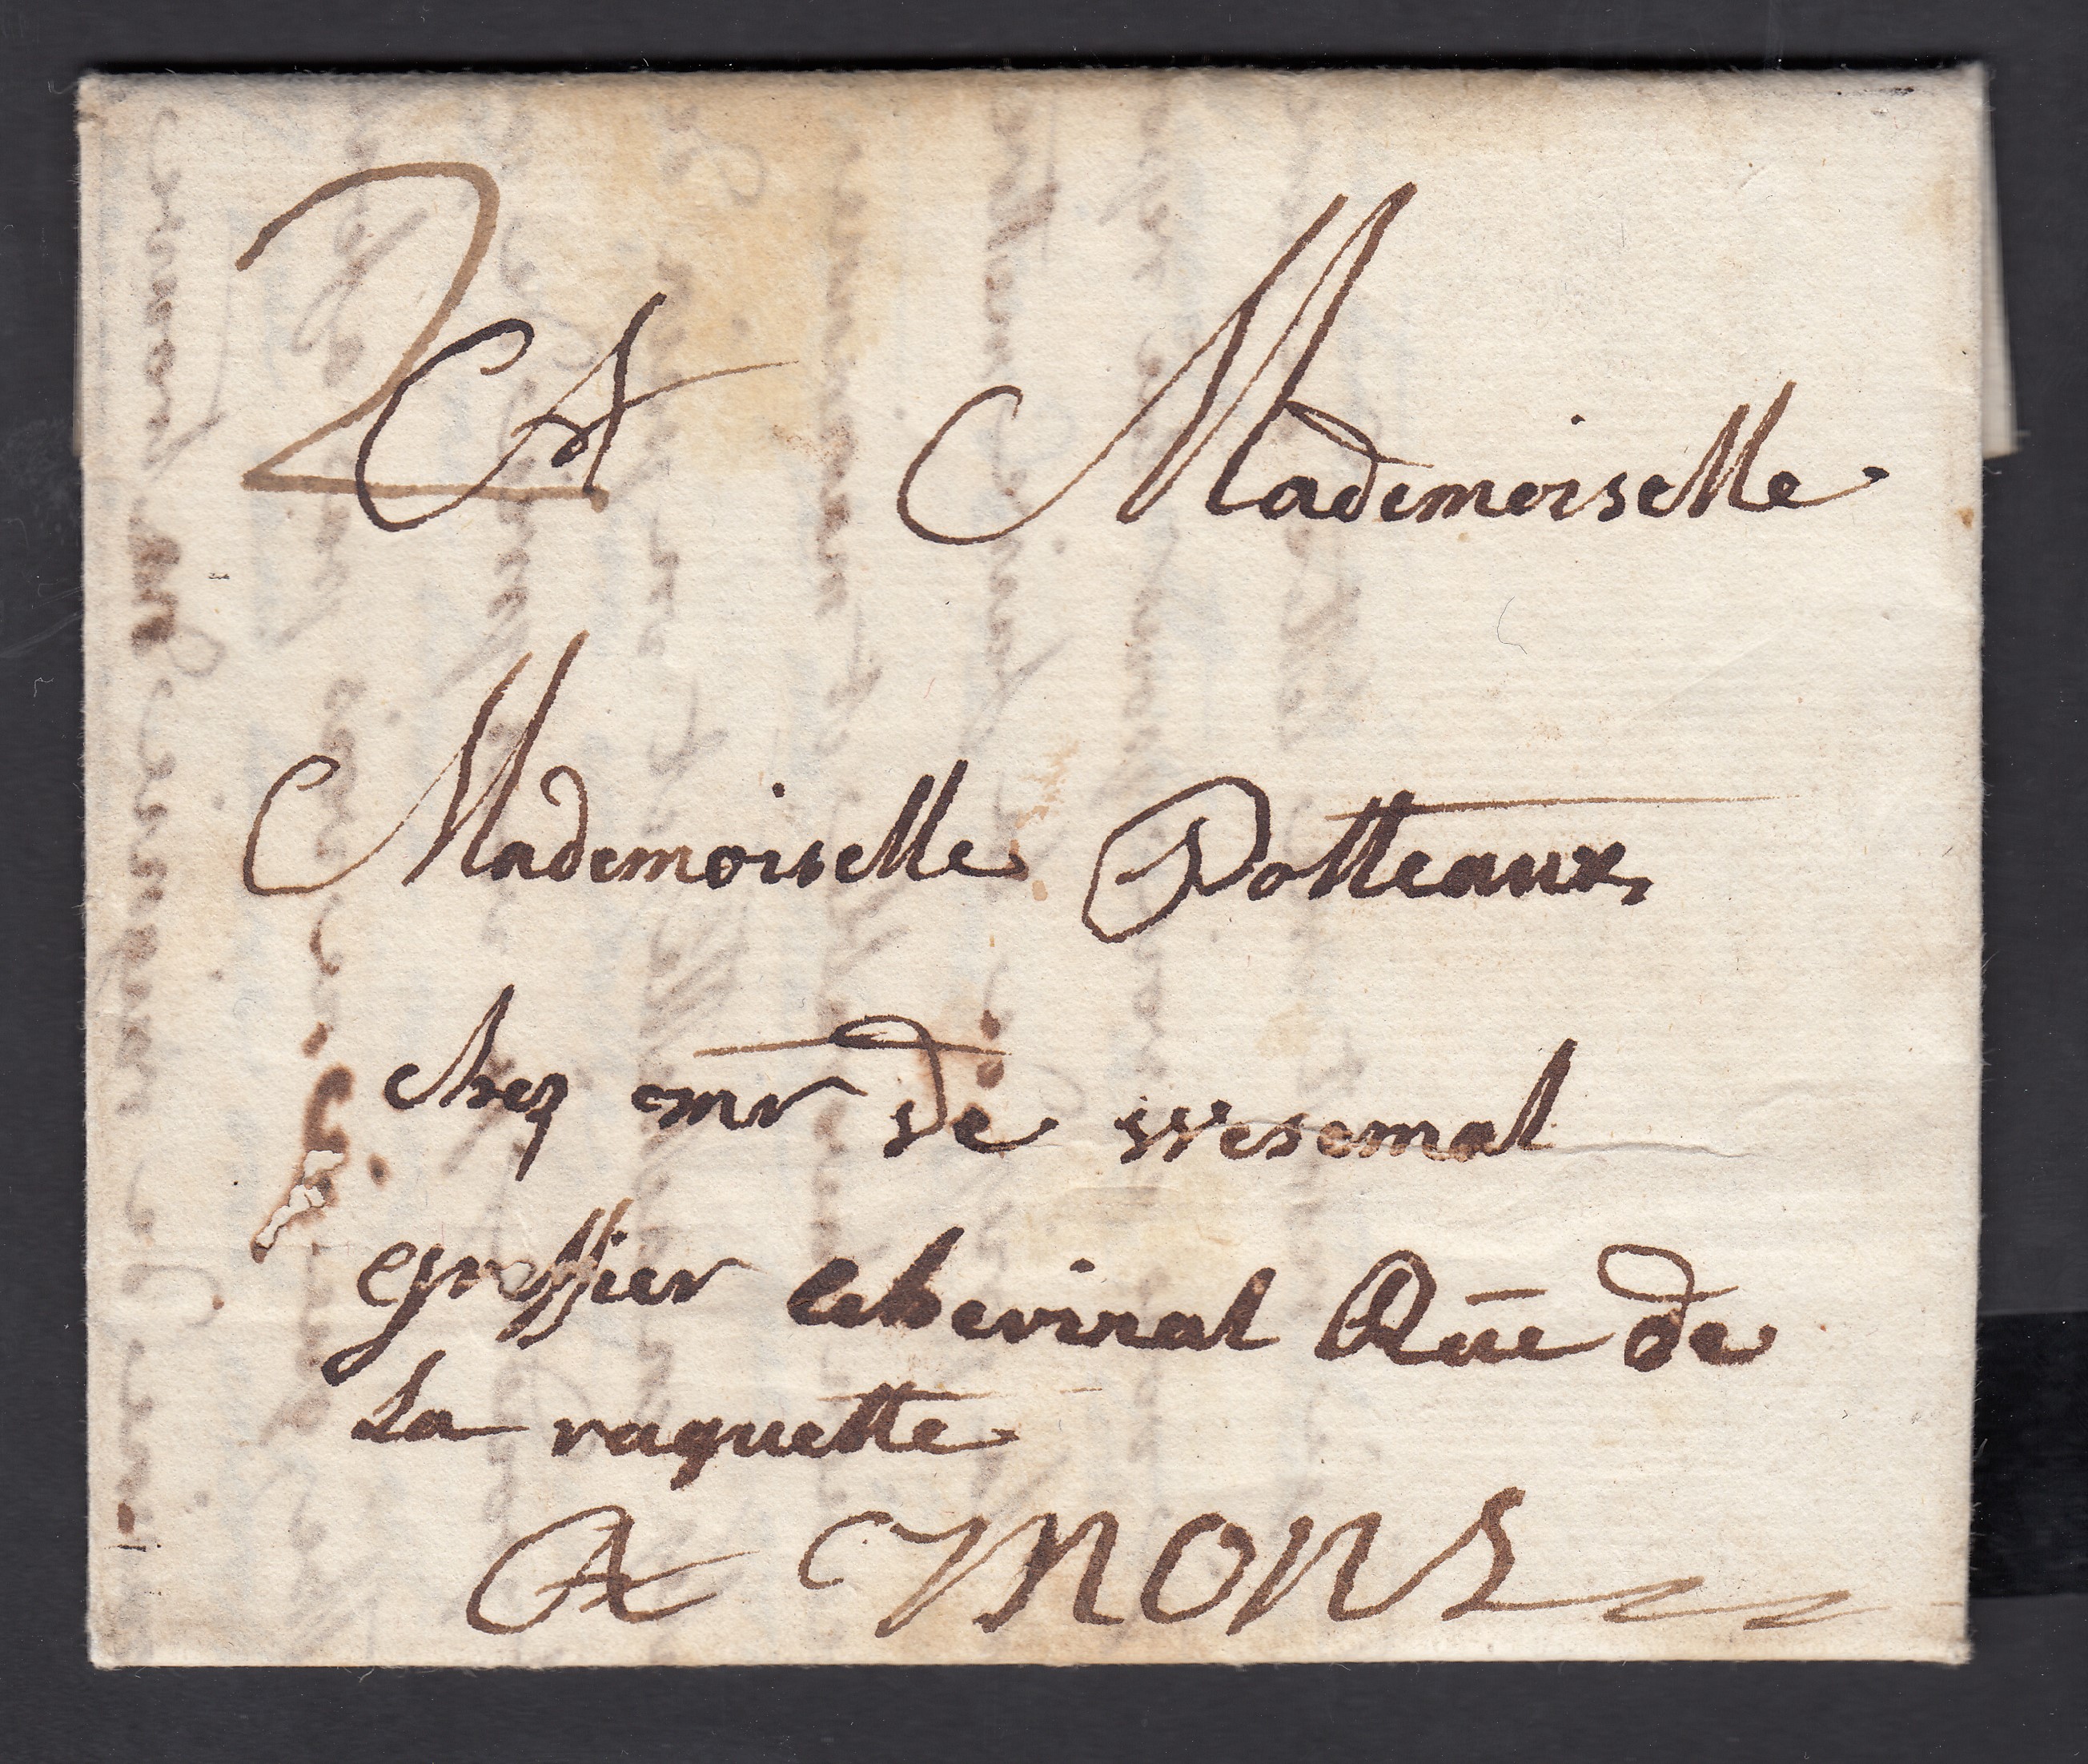 2
A Mademoiselle
Mademoiselle Potteaux
chez mr de wesemal
greffier echevinal Rüe de
La raquette
A mons